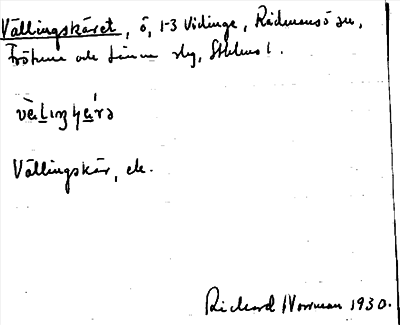 Vällingskäret, ö, 1-3 Vidinge, Rådmansö sn,
Frötuna och Länna slg, Sthlms l.
Vällingskär, ek.
Rickard Norrman 1930.